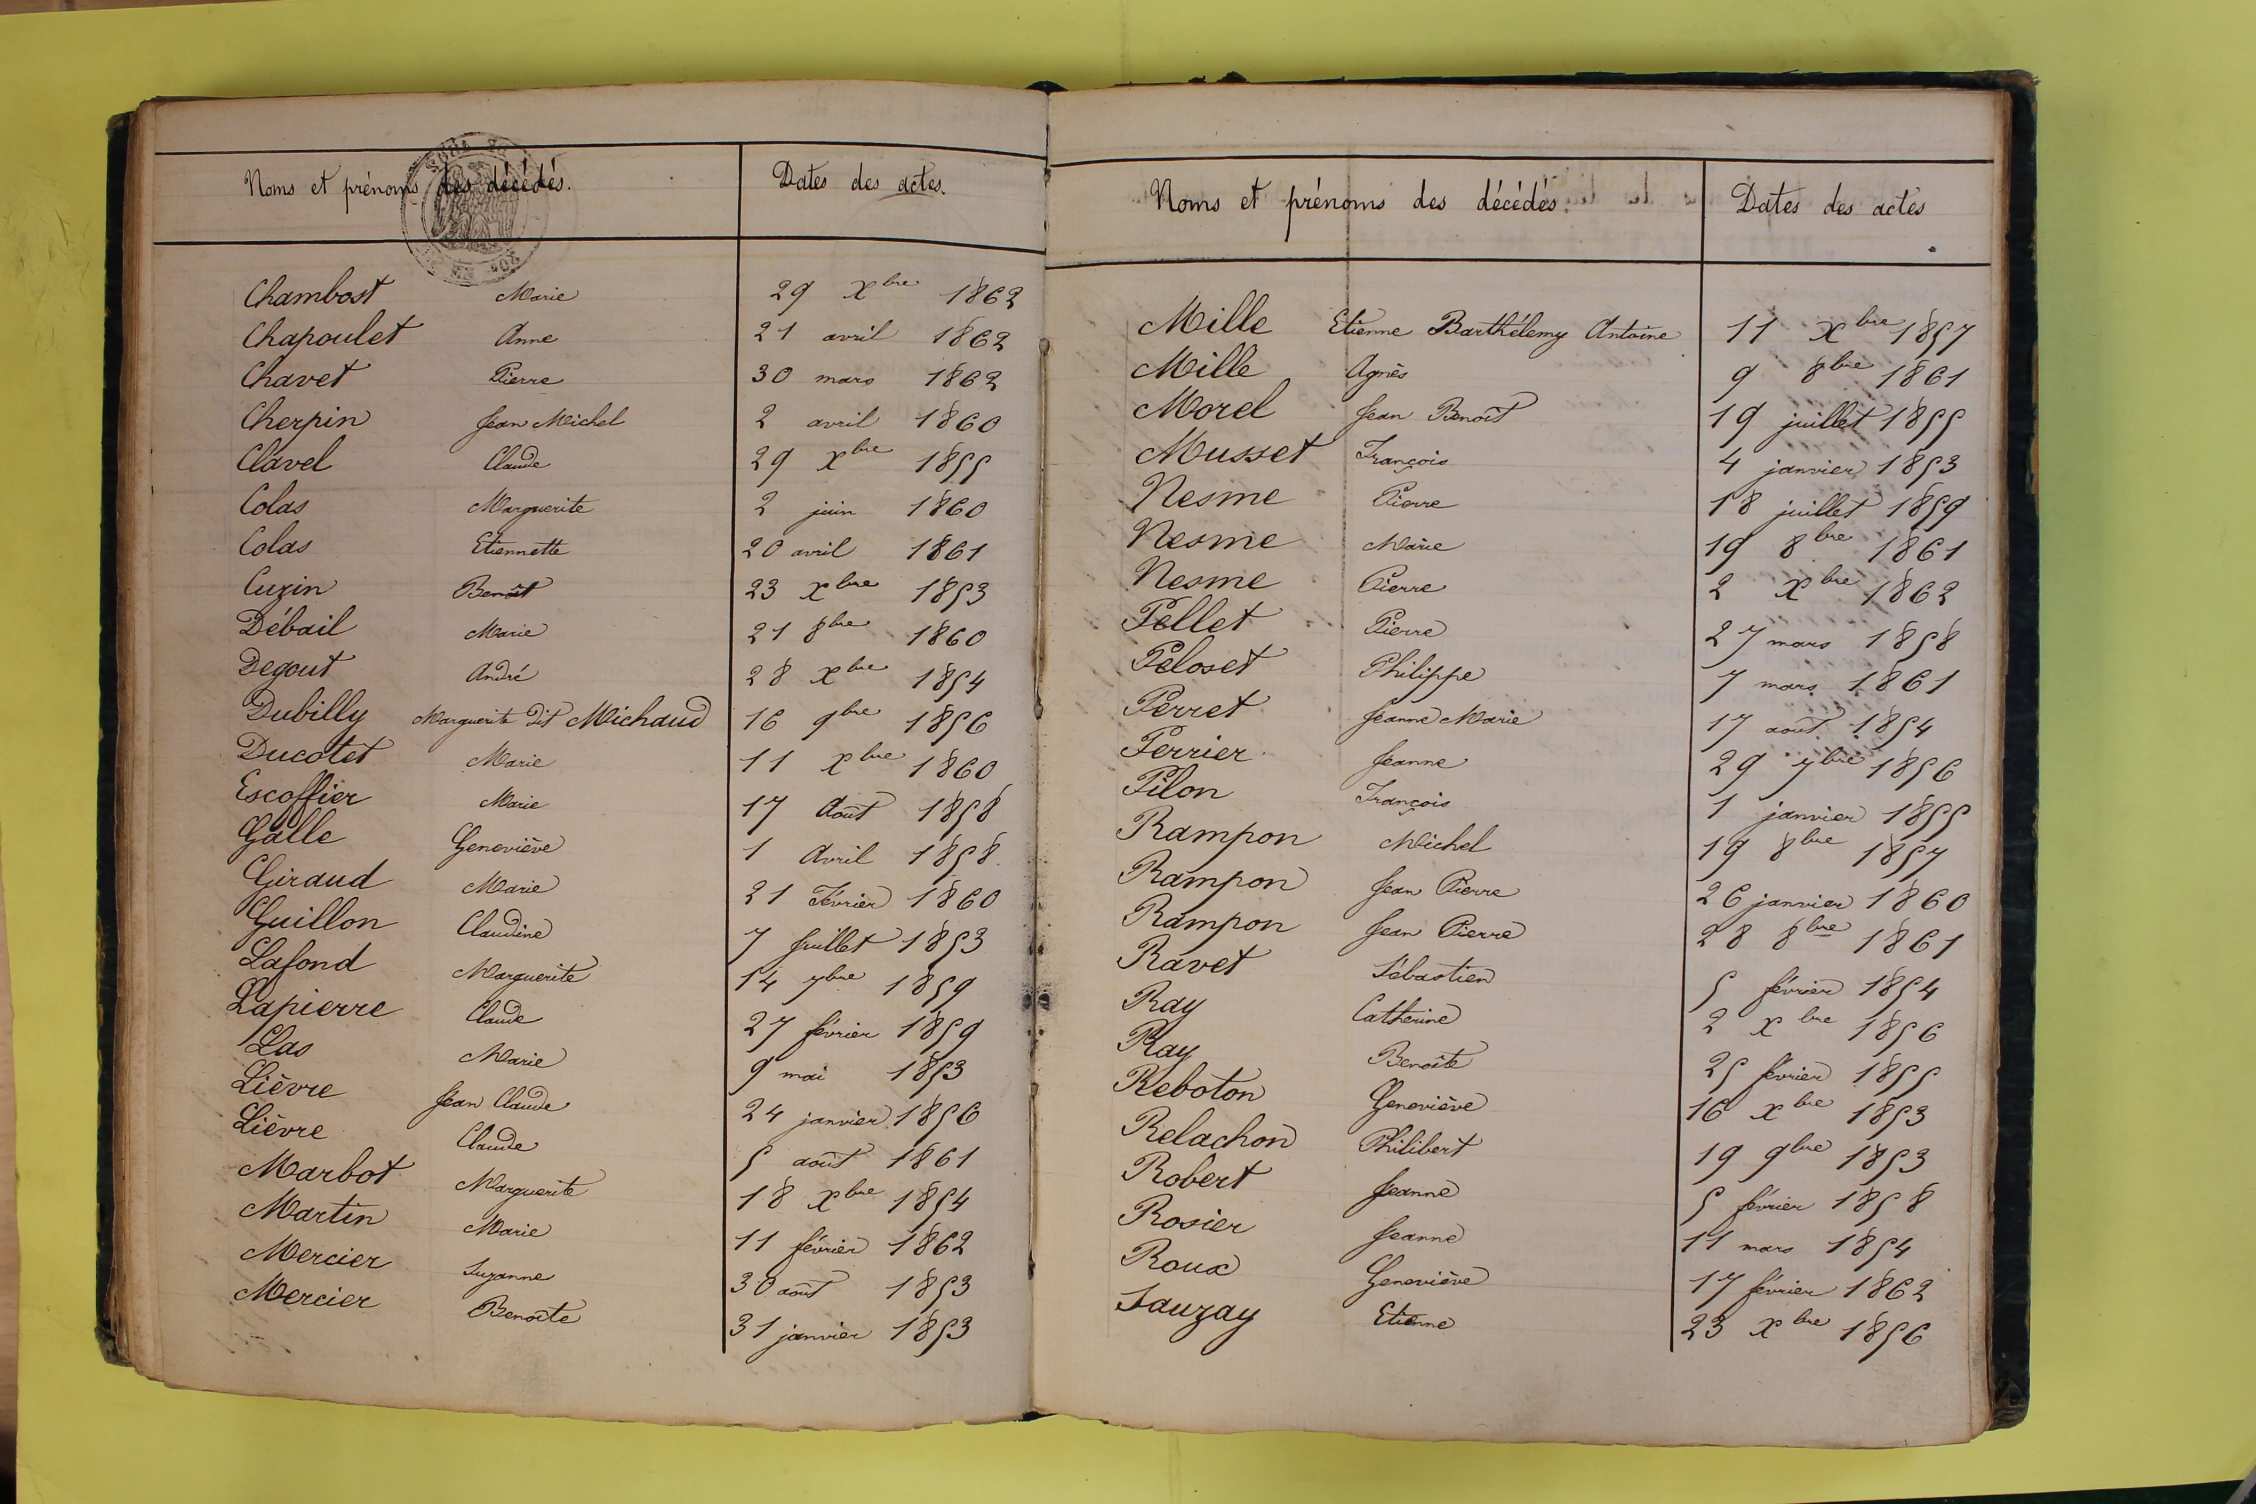 Noms et prénoms des décédés. Dates des actes.
Chambost Marie 29 Xbre 1862
Chapoulet Anne 21 avril 1862
Chavet Pierre 30 mars 1862
Cherpin Jean Michel 2 avril 1860
Clavel Claude 29 Xbre 1855
Colas Marguerite 2 juin 1860
Colas Etiennette 20 avril 1861
Cuzin Benoît 23 Xbre 1853
Débail Marie 21 8bre 1860
Degout André 28 Xbre 1854
Dubilly Marguerite dit Michaud 16 9bre 1856
Ducotet Marie 11 Xbre 1860
Escoffier Marie 17 Août 1858
Galle Geneviève 1 Avril 1858
Giraud Marie 21 Février 1860
Guillon Claudine 7 Juillet 1853
Lafond Marguerite 14 7bre 1859
Lapierre Claude 27 février 1859
Las Marie 9 mai 1853
Lièvre Jean Claude 24 janvier 1856
Lièvre Claude 5 août 1861
Marbot Marguerite 18 Xbre 1854
Martin Marie 11 février 1862
Mercier Suzanne 30 août 1853
Mercier Benoîte 31 janvier 1853
Noms et prénoms des décédés. Dates des actes
Mille Etienne Barthélemy Antoine 11 Xbre 1857
Mille Agnès 9 8bre 1861
Morel Jean Benoît 19 juillet 1855
Musset François 4 janvier 1853
Nesme Pierre 18 juillet 1859
Nesme Marie 19 8bre 1861
Nesme Pierre 2 Xbre 1862
Pellet Pierre 27 mars 1858
Peloset Philippe 7 mars 1861
Perret Jeanne Marie 17 août 1854
Perrier Jeanne 29 7bre 1856
Pilon François 1 janvier 1855
Rampon Michel 19 8bre 1857
Rampon Jean Pierre 26 janvier 1860
Rampon Jean Pierre 28 8bre 1861
Ravet Sébastien 5 février 1854
Ray Catherine 2 Xbre 1856
Ray Benoîte 25 février 1855
Reboton Geneviève 16 Xbre 1853
Relachon Philibert 19 9bre 1853
Robert Jeanne 5 février 1858
Rosier Jeanne 11 mars 1854
Roux Geneviève 17 février 1862
Sauzay Etienne 23 Xbre 1856